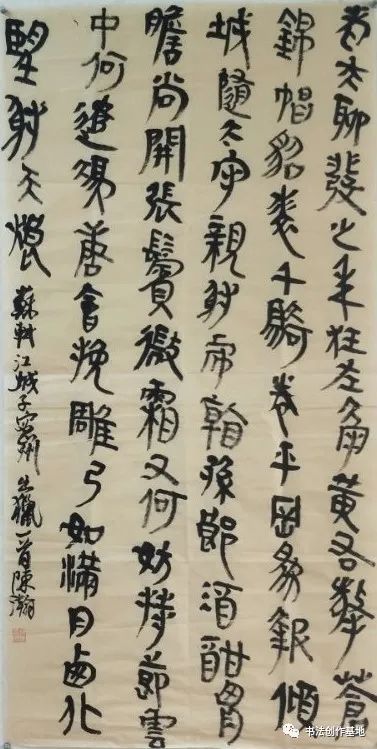 老夫聊發少年狂左牽黃右擎蒼
錦帽貂裘千騎卷平岡為報傾
城隨太守親射虎看孫郎酒酣胸
膽尚開張鬢微霜又何妨持節雲
中何遣馮唐會挽雕弓如滿月西北
望射天狼 蘇軾江城子密州出獵一首陳瀚
书法创作基地